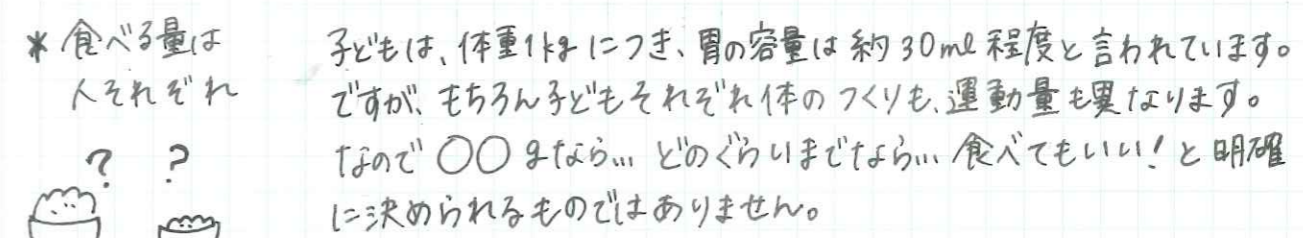 * 食べる量は
人それぞれ
? ?
子どもは、体重1kgにつき、胃の容量は約30ml程度と言われています。
ですが、もちろん子どもそれぞれ体のつくりも、運動量も異なります。
なので〇〇gなら… どのぐらいまでなら… 食べてもいい!と明確
に決められるものではありません。